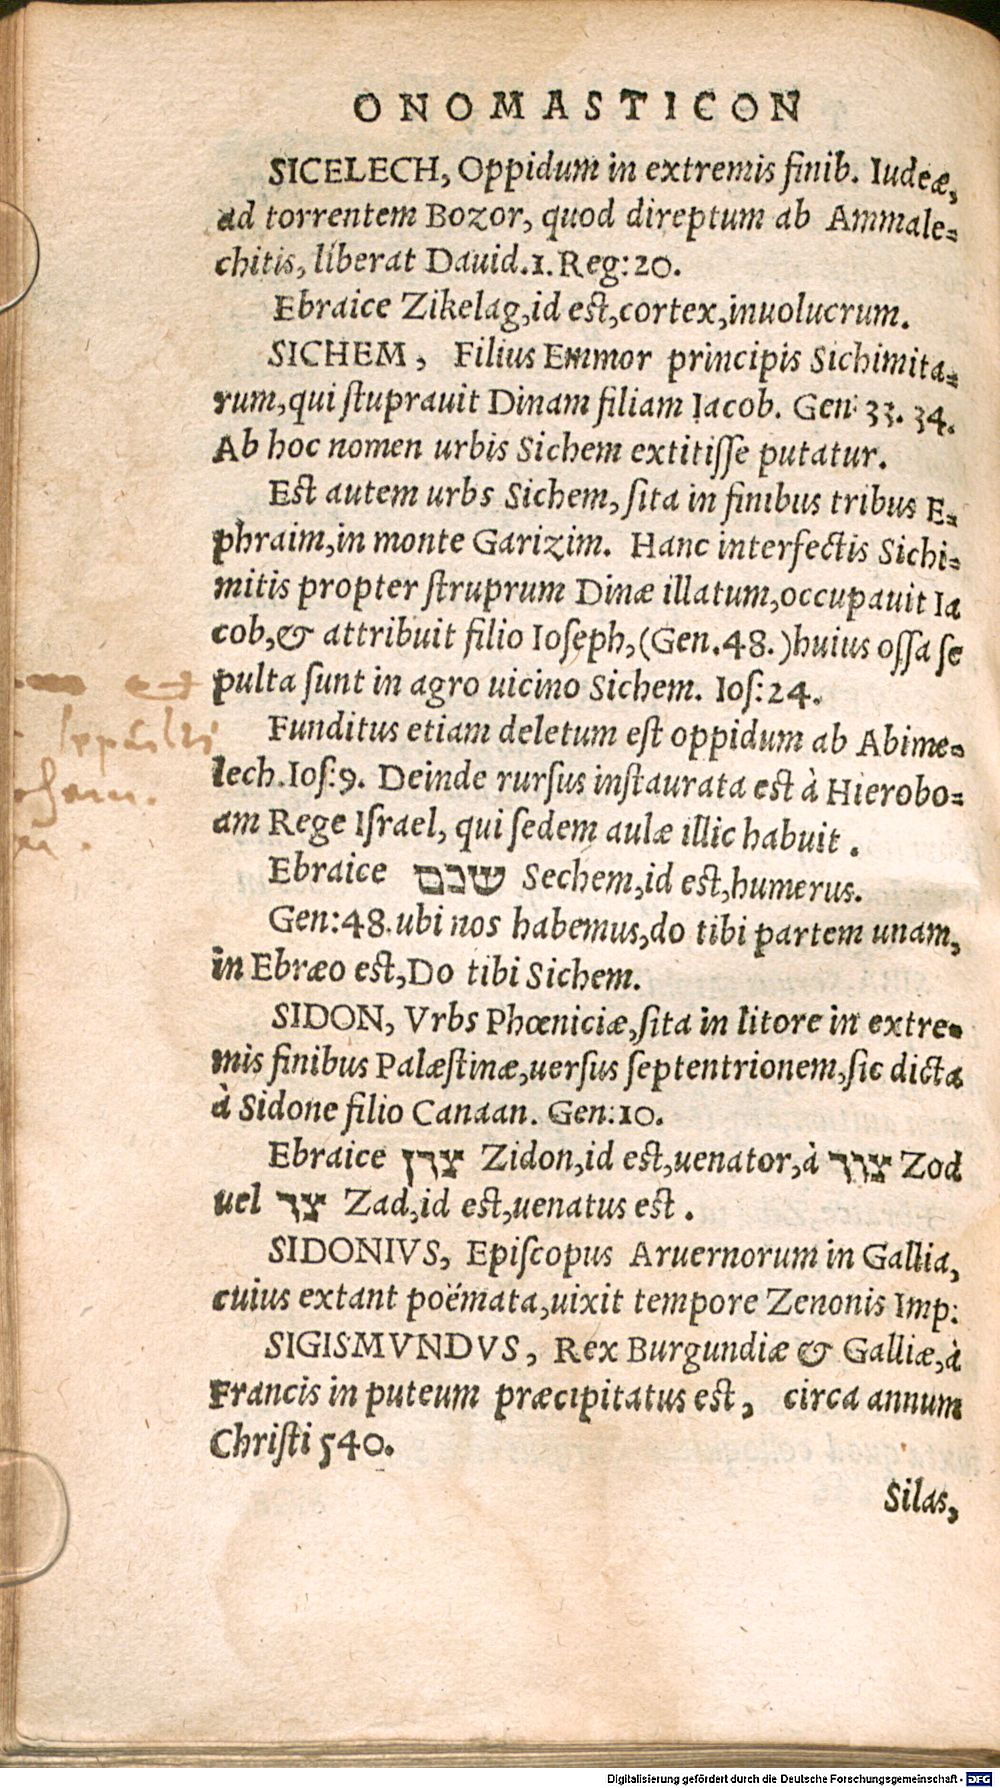 ONOMASTICON
SICELECH, Oppidum in extremis finib. Iudeæ,
ad torrentem Bozor, quod direptum ab Ammale-
chitis, liberat Dauid.1. Reg:20.
Ebraice Zikelag,id est,cortex,inuolucrum.
SICHEM, Filius Emmor principis Sichimita-
rum,qui stuprauit Dinam filiam Iacob. Gen: 33. 34.
Ab hoc nomen urbis Sichem extitisse putatur.
Est autem urbs Sichem, sita in finibus tribus E-
phraim,in monte Garizim. Hanc interfectis Sichi-
mitis propter struprum Dinæ illatum,occupauit Ia
cob,& attribuit filio Ioseph,(Gen.48.)huius ossa se
pulta sunt in agro uicino Sichem. Ios:24.
Funditus etiam deletum est oppidum ab Abime-
lech.Ios:9. Deinde rursus instaurata est à Hierobo-
am Rege Israel, qui sedem aulæ illic habuit.
Ebraice שכם Sechem,id est,humerus.
Gen:48.ubi nos habemus,do tibi partem unam,
in Ebræo est,Do tibi Sichem.
SIDON, Vrbs Phœniciæ,sita in litore in extre-
mis finibus Palæstinæ,uersus septentrionem,sic dicta
à Sidone filio Canaan. Gen:10.
Ebraice צדן Zidon,id est,uenator,à צוד Zod
uel צד Zad,id est,uenatus est.
SIDONIVS, Episcopus Aruernorum in Gallia,
cuius extant poëmata,uixit tempore Zenonis Imp:
SIGISMVNDVS, Rex Burgundiæ & Galliæ,à
Francis in puteum præcipitatus est, circa annum
Christi 540.
Silas,
et
sepulti
Digitalisierung gefördert durch die Deutsche Forschungsgemeinschaft - DFG